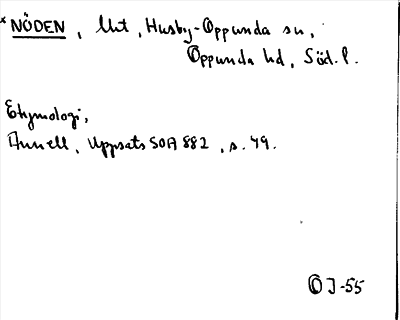 *NÖDEN, Unt, Husby-Oppunda sn,
Oppunda hd, Söd. l.
Etymologi,
Annell, Uppsats SOA 882, s. 49.
OJ-55